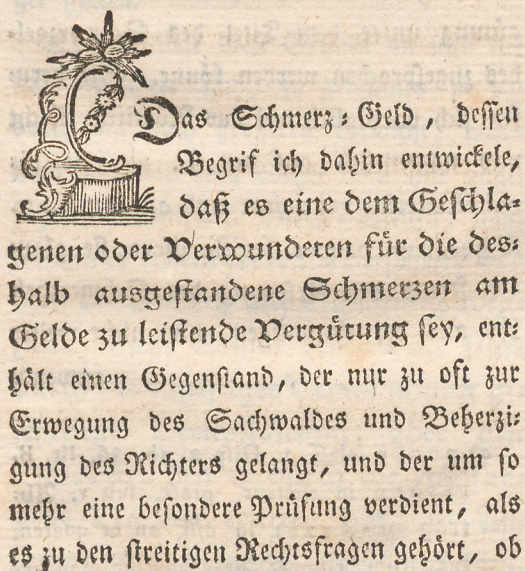 Das Schmerz-Geld, dessen
Begrif ich dahin entwickele,
daß es eine dem Geschla-
genen oder Verwundeten für die des-
halb ausgestandene Schmerzen am
Gelde zu leistende Vergütung sey, ent-
hält einen Gegenstand, der nur zu oft zur
Erwegung des Sachwaldes und Beherzi-
gung des Richters gelangt, und der um so
mehr eine besondere Prüfung verdient, als
es zu den streitigen Rechtsfragen gehört, ob